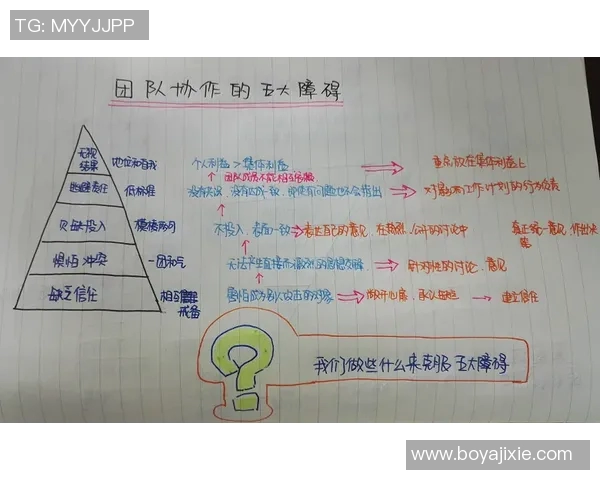 TG: MYYJJPP
团队协作的五大障碍
无视结果 地位和自我 个人利益 > 集体利益 重点放在集体利益上
团队成员不能相互
逃避责任 低标准 没有共识、没有达成一致,即使有问题也不会指出 对影响工作计划的行为负责
欠缺投入 模棱两可 不投入,表面一致 表达自己的意见,在热烈、公开的讨论中 真正统一意见,作出决策
惧怕冲突 一团和气 无法产生直接而激烈的思想交锋 针对性的讨论、意见
缺乏信任 相互戒备 害怕成为别人攻击的对象 敞开心扉,承认缺点 建立信任
我们做些什么来克服五大障碍
www.boyajixie.com